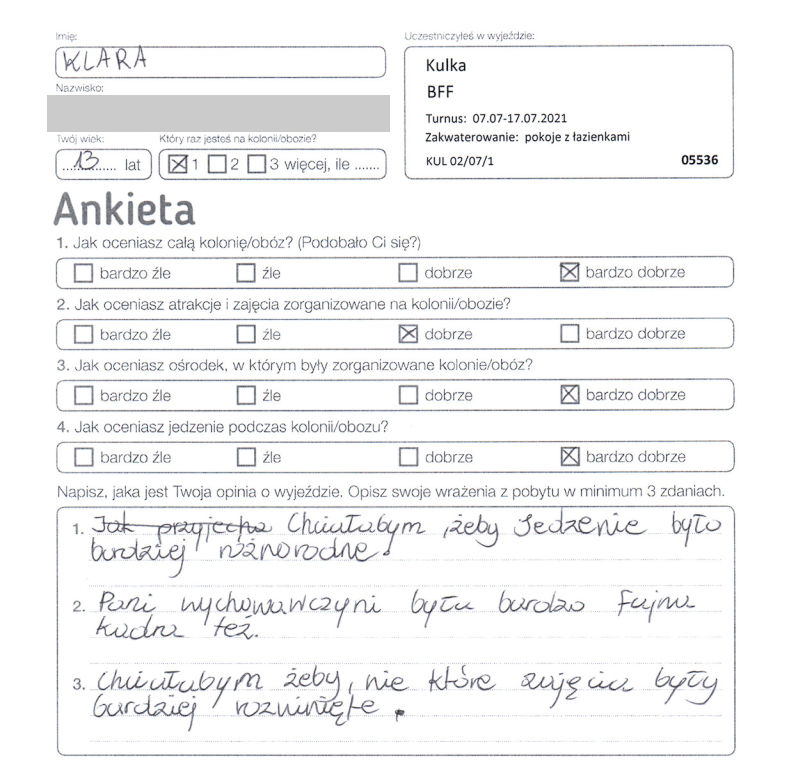 Imię:
KLARA
Nazwisko:
Twój wiek:
13 lat
Który raz jesteś na kolonii/obozie?
1 2 3 więcej, ile .......
Uczestniczyłeś w wyjeździe:
Kulka
BFF
Turnus: 07.07-17.07.2021
Zakwaterowanie: pokoje z łazienkami
KUL 02/07/1 05536
Ankieta
1. Jak oceniasz całą kolonię/obóz? (Podobało Ci się?)
bardzo źle źle dobrze bardzo dobrze
2. Jak oceniasz atrakcje i zajęcia zorganizowane na kolonii/obozie?
bardzo źle źle dobrze bardzo dobrze
3. Jak oceniasz ośrodek, w którym były zorganizowane kolonie/obóz?
bardzo źle źle dobrze bardzo dobrze
4. Jak oceniasz jedzenie podczas kolonii/obozu?
bardzo źle źle dobrze bardzo dobrze
Napisz, jaka jest Twoja opinia o wyjeździe. Opisz swoje wrażenia z pobytu w minimum 3 zdaniach.
1. Jak przyjecha Chciałabym ,żeby Jedzenie było
bardziej różnorodne.
2. Pani wychowawczyni była bardzo Fajna
kadra też.
3. Chciałabym żeby, nie które zajęcia były
bardziej rozwinięte.